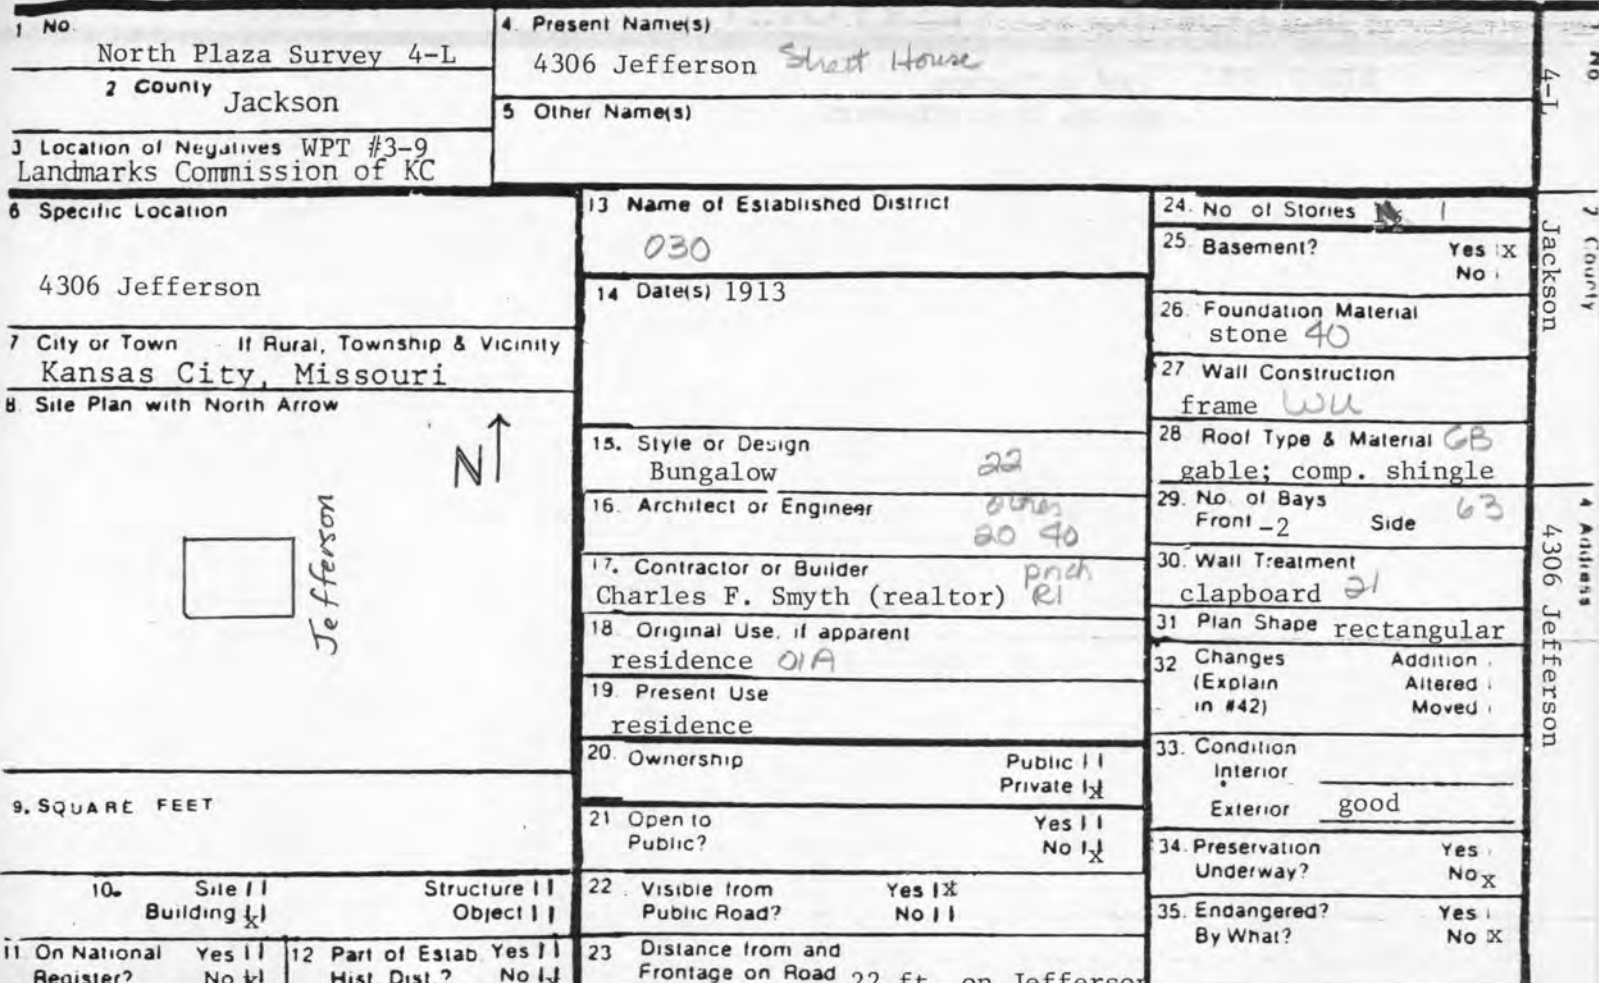 1 No.
North Plaza Survey 4-L
2 County Jackson
3 Location of Negatives WPT #3-9
Landmarks Commission of KC
4. Present Name(s)
4306 Jefferson Street House
5 Other Name(s)
6 Specific Location
4306 Jefferson
7 City or Town If Rural, Township & Vicinity
Kansas City, Missouri
8 Site Plan with North Arrow
N
Jefferson
9. SQUARE FEET
10. Site Structure
Building X Object
11 On National Yes
Register? No X
12 Part of Estab. Yes
Hist. Dist.? No
13 Name of Established District
030
14 Date(s) 1913
15. Style or Design 22
Bungalow
16. Architect or Engineer other
20 40
17. Contractor or Builder
Charles F. Smyth (realtor) R1
18 Original Use, if apparent
residence 01A
19. Present Use
residence
20. Ownership Public
Private X
21 Open to Yes
Public? No X
22 Visible from Yes X
Public Road? No
23 Distance from and
Frontage on Road 22 ft. on Jefferson
24. No of Stories 1
25. Basement? Yes X
No
26. Foundation Material
stone 40
27 Wall Construction
frame WU
28 Roof Type & Material GB
gable; comp. shingle
29. No. of Bays 63
Front -2 Side
30. Wall Treatment
clapboard 21
31 Plan Shape rectangular
32 Changes Addition
(Explain Altered
in #42) Moved
33. Condition
Interior
Exterior good
34. Preservation Yes
Underway? No X
35. Endangered? Yes
By What? No X
No
4-L
2 County
Jackson
4 Address
4306 Jefferson